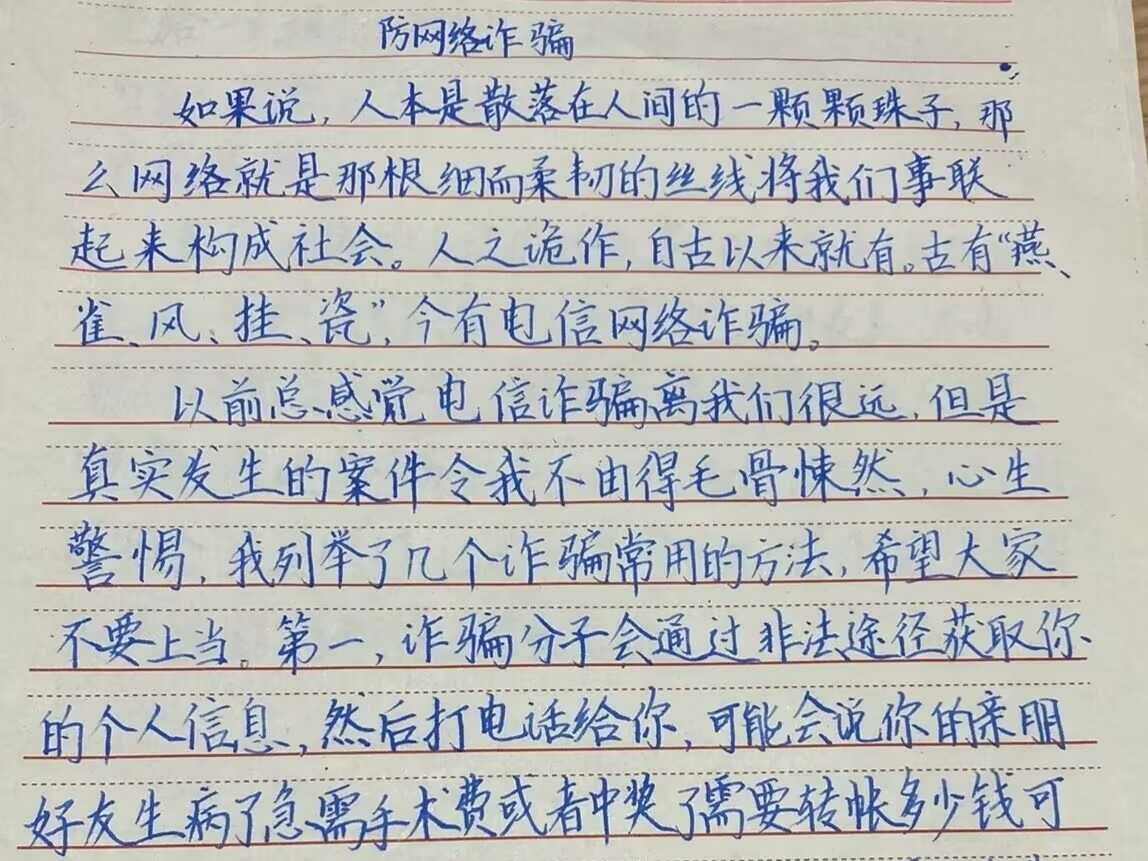 防网络诈骗
如果说，人本是散落在人间的一颗颗珠子，那
么网络就是那根细而柔韧的丝线将我们事联
起来构成社会。人之诡作，自古以来就有。古有“燕、
雀、风、挂、瓷”，今有电信网络诈骗。
以前总感觉电信诈骗离我们很远，但是
真实发生的案件令我不由得毛骨悚然，心生
警惕，我列举了几个诈骗常用的方法，希望大家
不要上当。第一，诈骗分子会通过非法途径获取你
的个人信息，然后打电话给你，可能会说你的亲朋
好友生病了急需手术费或者中奖了需要转帐多少钱可